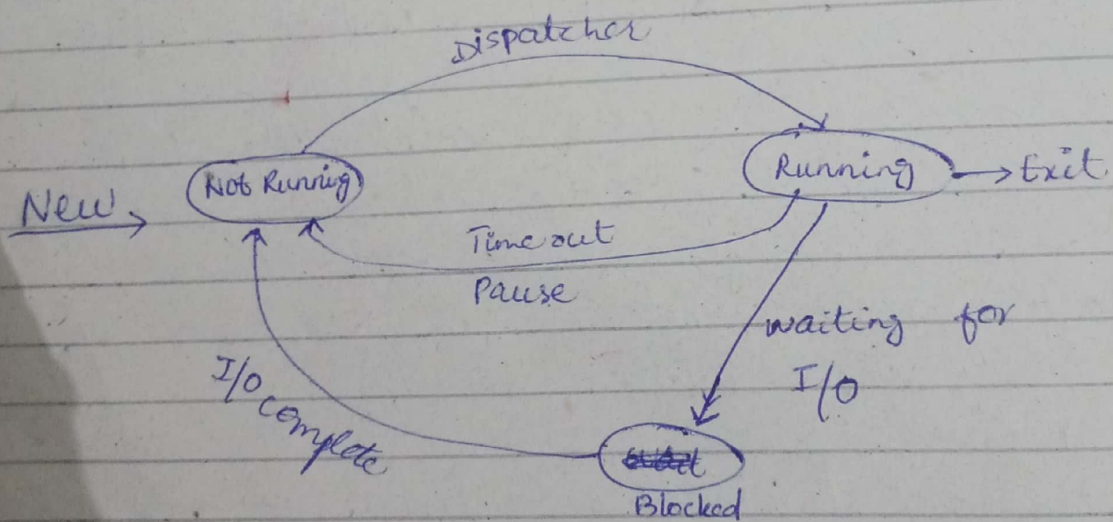 Dispatcher
Not Running
Running
Exit
New
Time out
Pause
waiting for
I/O
I/O complete
Blocked